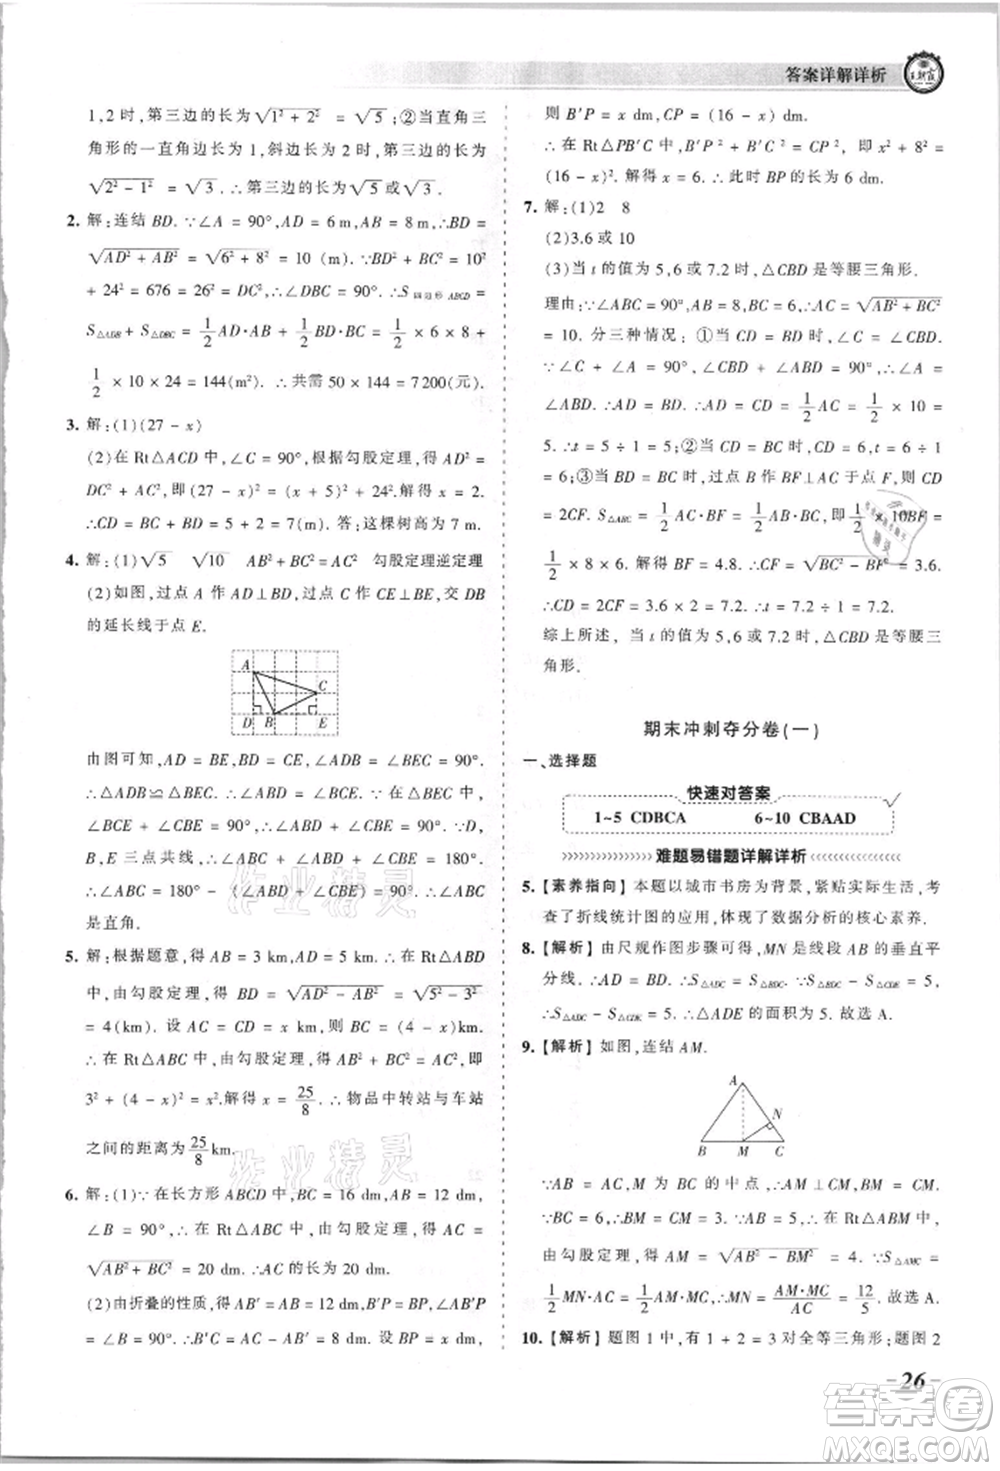 答案详解详析
王朝霞
1,2 时,第三边的长为√(1²+2²) = √5;②当直角三
角形的一直角边长为 1,斜边长为 2 时,第三边的长为
√(2²-1²) = √3. ∴第三边的长为√5或√3.
2. 解:连结 BD. ∵∠A = 90°,AD = 6 m,AB = 8 m,∴BD =
√(AD²+AB²) = √(6²+8²) = 10 (m). ∵BD² + BC² = 10²
+ 24² = 676 = 26² = DC²,∴∠DBC = 90°. ∴S四边形ABCD =
S△ADB + S△DBC = 1/2 AD·AB + 1/2 BD·BC = 1/2 × 6 × 8 +
1/2 × 10 × 24 = 144(m²). ∴共需 50 × 144 = 7 200(元).
3. 解:(1)(27 - x)
(2)在 Rt△ACD 中,∠C = 90°,根据勾股定理,得 CD² =
DC² + AC²,即(27 - x)² = (5 + x)² + 24². 解得 x = 2.
∴CD = BC + BD = 5 + 2 = 7. 答:这棵树高为 7 m.
4. 解:(1)√5 √10 AB² + BC² = AC² 勾股定理逆定理
(2)如图,过点 A 作 AD⊥BD,过点 C 作 CE⊥BE,交 DB
的延长线于点 E.
A
C
D B E
由图可知,AD = BE,BD = CE,∠ADB = ∠BEC = 90°.
∴△ADB≌△BEC. ∴∠ABD = ∠BCE. 在 Rt△BCE 中,
∠BCE + ∠CBE = 90°,∴∠ABD + ∠CBE = 90°. ∵D,
B,E 三点共线,∴∠ABD + ∠CBE + ∠ABC = 180°.
∴∠ABC = 180° - (∠ABD + ∠CBE) = 90°. ∴∠ABC
是直角.
5. 解:根据题意,得 AB = 3 km,AD = 5 km. 在 Rt△ABD
中,由勾股定理,得 BD = √(AD²-AB²) = √(5²-3²)
= 4(km). 设 AC = CD = x km,则 BC = (4 - x) km.
在 Rt△ABC 中,由勾股定理,得 AB² + BC² = AC²,即
3² + (4 - x)² = x². 解得 x = 25/8. ∴物品中转站与车站
之间的距离为 25/8 km.
6. 解:(1)∵在长方形 ABCD 中,BC = 16 dm,AB = 12 dm,
∠B = 90°,∴在 Rt△ABC 中,由勾股定理,得 AC =
√(AB²+BC²) = 20 dm. ∴AC 的长为 20 dm.
(2)由折叠的性质,得 AB′ = AB = 12 dm,∠AB′P =
∠B = 90°. ∴B′C = AC - AB′ = 8 dm. 设 BP = x dm,
则 B′P = x dm,CP = (16 - x) dm.
∴在 Rt△PB′C 中,B′P² + B′C² = CP²,即 x² + 8² =
(16 - x)². 解得 x = 6. ∴此时 BP 的长为 6 dm.
7. 解:(1)2 8
(2)3.6 或 10
(3)当 t 的值为 5,6 或 7.2 时,△CBD 是等腰三角形.
理由:∵∠ABC = 90°,AB = 8,BC = 6,∴AC = √(AB²+BC²)
= 10. 分三种情况:①当 CD = BD 时,∠C = ∠CBD.
∵∠C + ∠A = 90°,∠CBD + ∠ABD = 90°,∴∠A =
∠ABD. ∴BD = AD. ∴CD = AD = 1/2 AC = 1/2 × 10 =
5. ∴t = 5 ÷ 1 = 5;②当 CD = BC 时,CD = 6,t = 6 ÷ 1
= 6;③当 BD = BC 时,过点 B 作 BF⊥AC 于点 F,则
CD = 2CF. ∵S△ABC = 1/2 AC·BF = 1/2 × 10BF =
1/2 × 8 × 6. 解得 BF = 4.8. ∴CF = √(CB²-BF²) = 3.6.
∴CD = 2CF = 7.2. ∴t = 7.2 ÷ 1 = 7.2.
综上所述,当 t 的值为 5,6 或 7.2 时,△CBD 是等腰三
角形.
期末冲刺夺分卷(一)
一、选择题
快速对答案
1~5 CDBCA 6~10 CBAAD
难题易错题详解详析
5. 【素养指向】本题以城市书房为背景,紧贴实际生活,考
查了折线统计图的应用,体现了数据分析的核心素养.
8. 【解析】由尺规作图步骤可得,MN 是线段 AB 的垂直平
分线. ∴AD = BD. ∴S△ADC = S△BDC. ∵S△BDC - S△CDE = 5,
∴S△ADC - S△CDE = 5. ∴△ADE 的面积为 5. 故选 A.
9. 【解析】如图,连结 AM.
A
N
B M C
∵AB = AC,M 为 BC 的中点,∴AM⊥BC.
∵BC = 6,∴BM = CM = 3. 在 Rt△ABM 中,AB = 5,
由勾股定理,得 AM = √(AB²-BM²) = 4. ∵S△AMC =
1/2 MN·AC = 1/2 AM·MC,∴MN = AM·MC/AC = 12/5. 故选 A.
10. 【解析】题图 1 中,有 1 + 2 = 3 对全等三角形;题图 2
26
作业精灵
作业精灵
答案圈
MXQE.COM